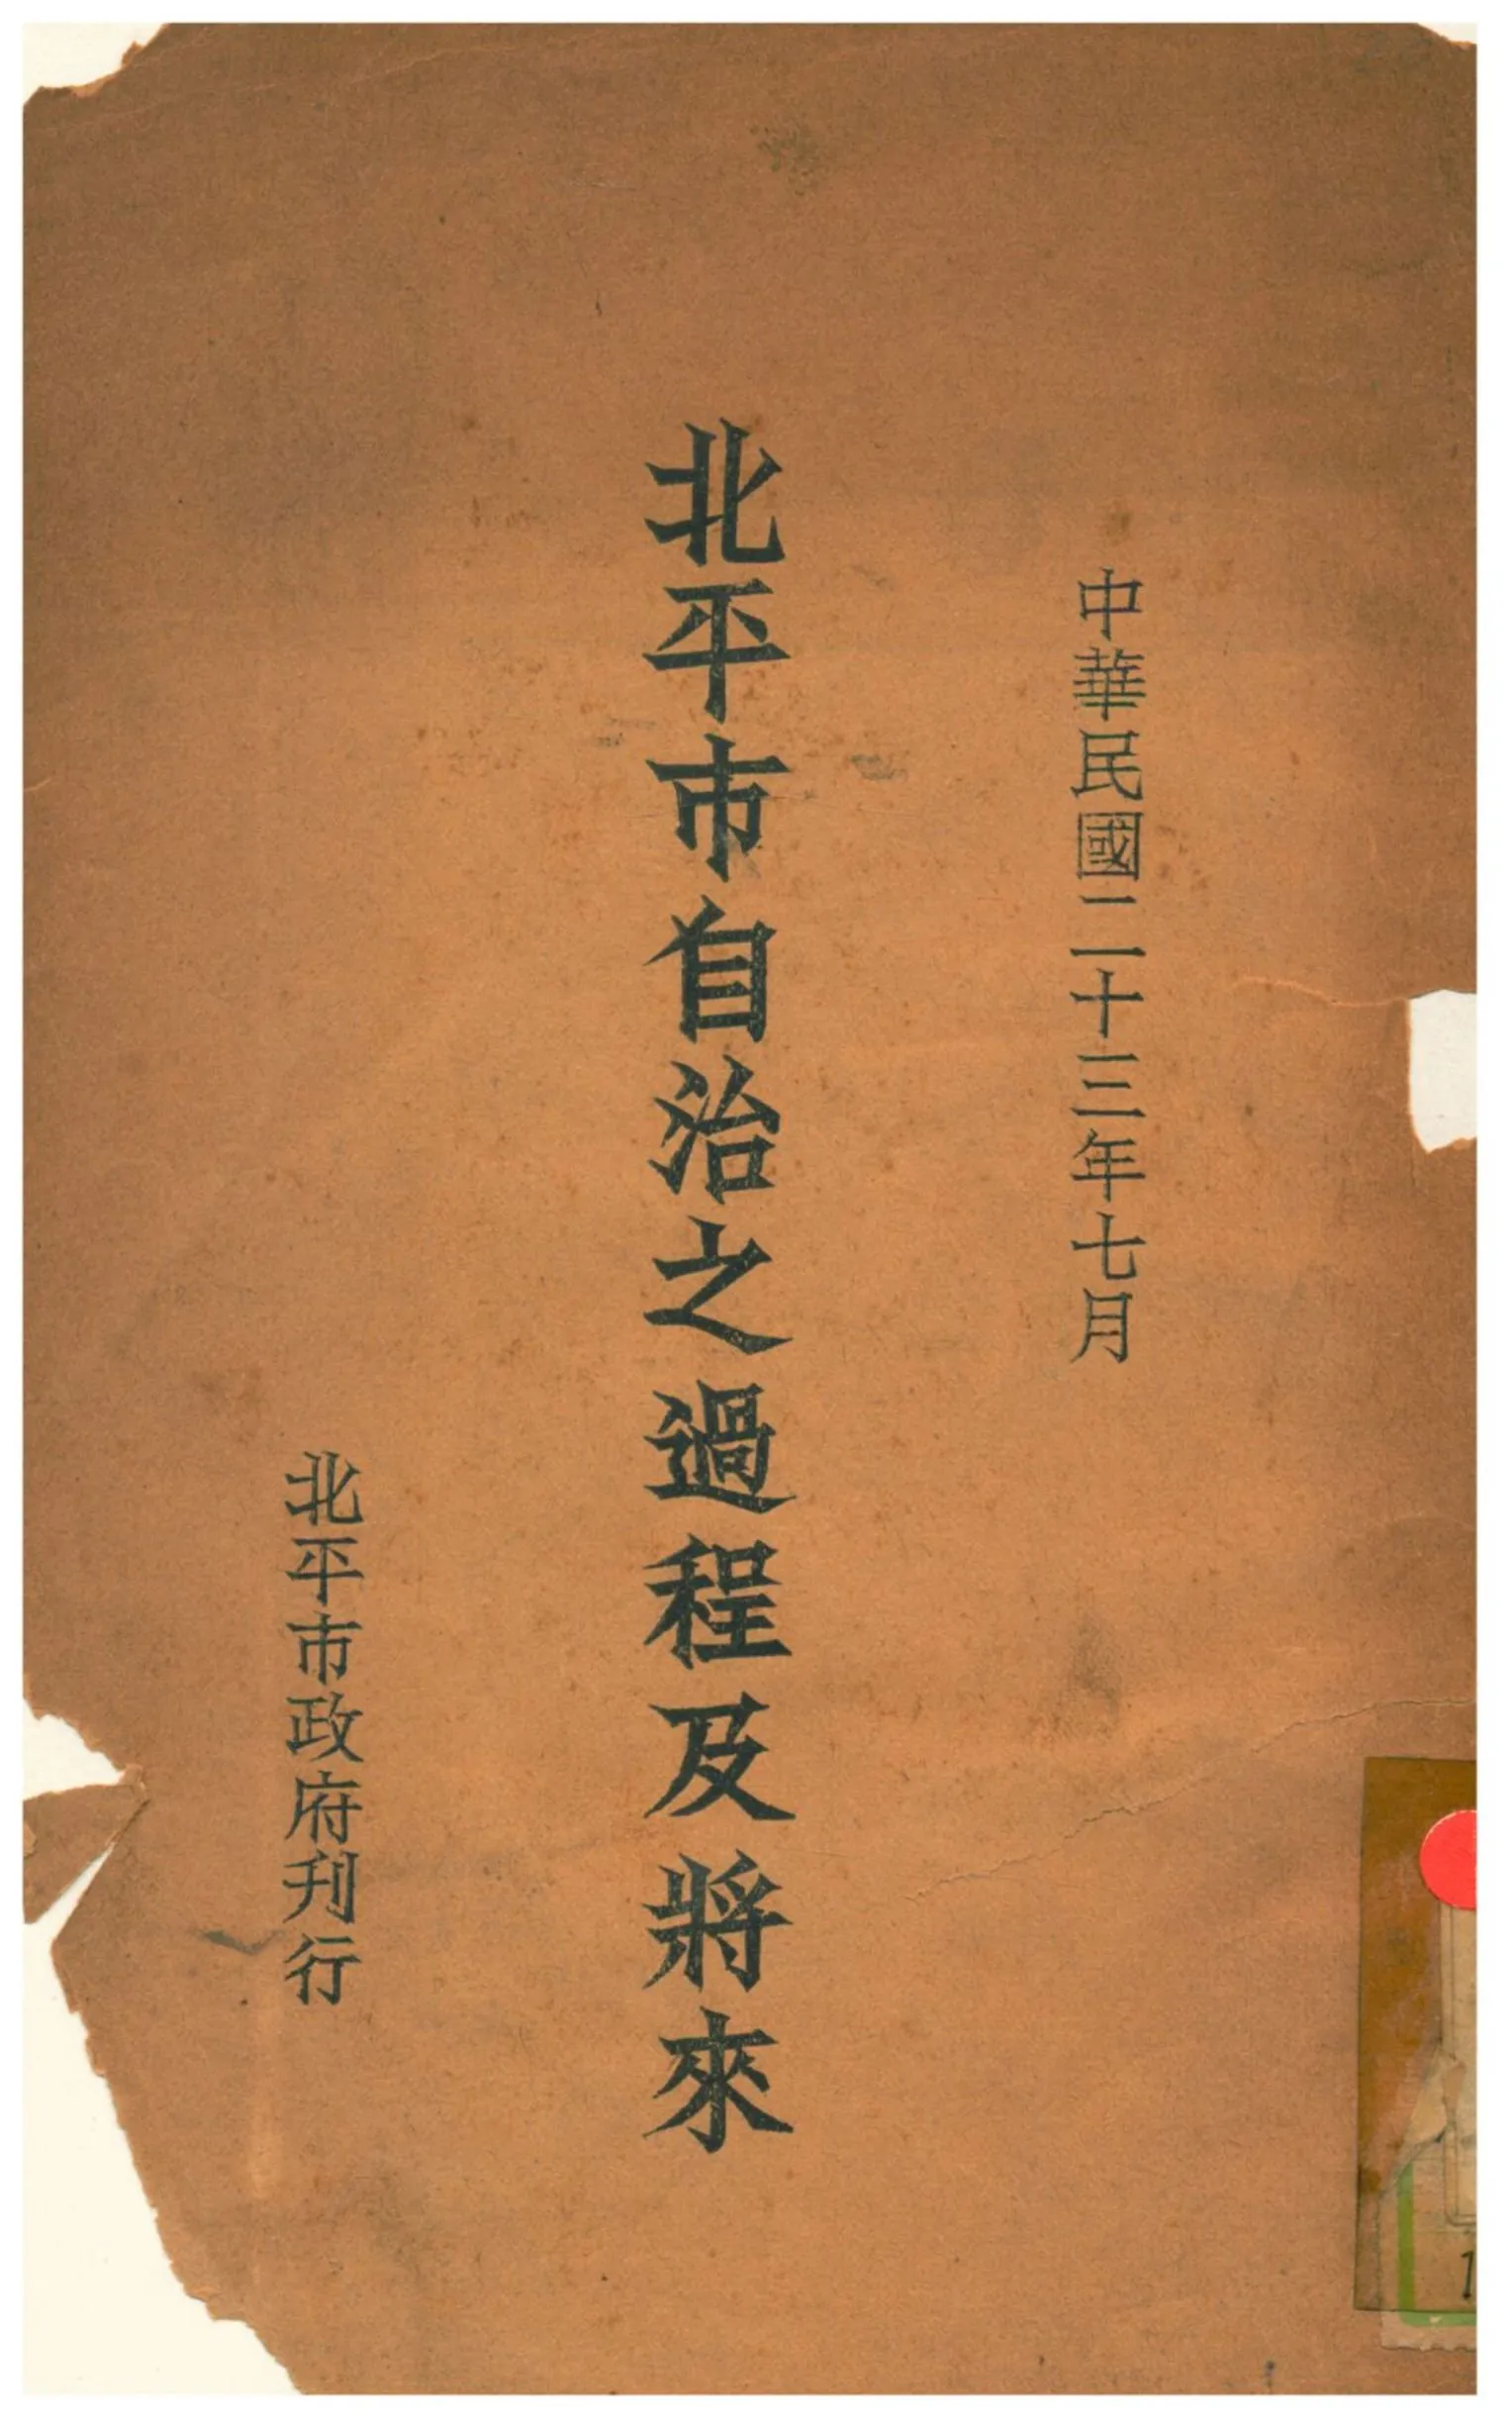 中華民國二十三年七月
北平市自治之過程及將來
北平市政府刋行